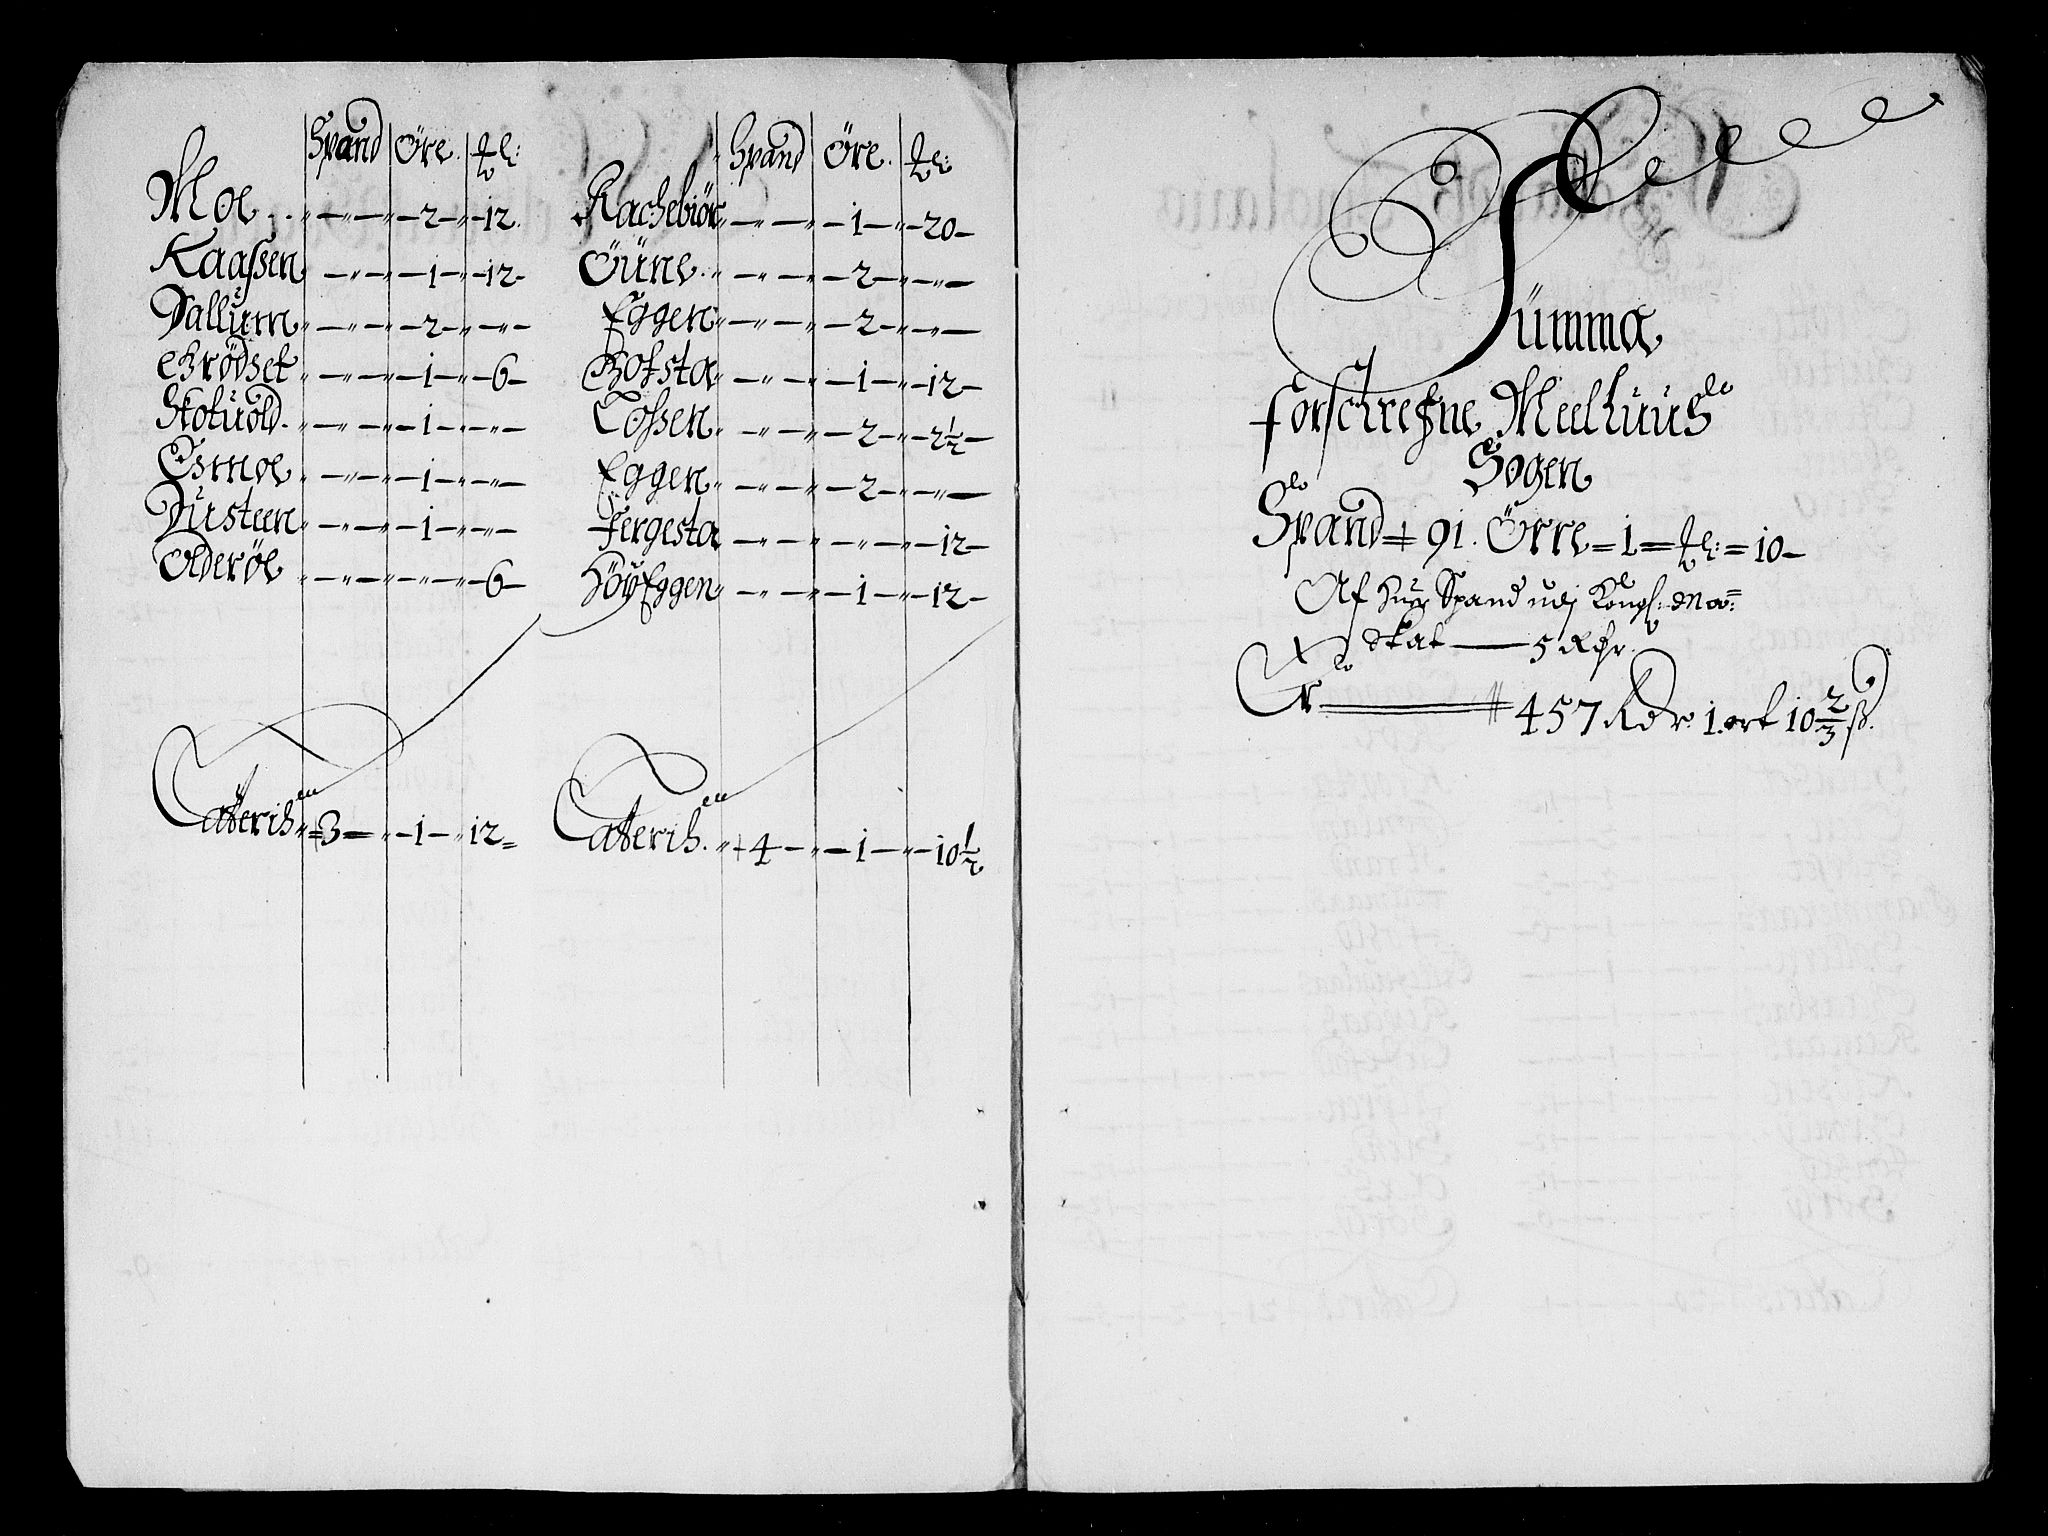 Spand Öre. ℔l:
Moe .. „ — „ — „ — 2 — „ — 12.
Kaassen „ — „ — „ — 1 — „ — 12 -
Dallum „ — „ — „ — 2 — „ — „ —
Grödset „ — „ — „ — 1 — „ — 6 -
Skotuold. „ — „ — „ — 1 — „ — „ —
Esmoe „ — „ — „ — 1 — „ — „ —
Dusteen „ — „ — „ — 1 — „ — „ —
Olderöe „ — „ — „ — „ — „ — 6 -
Laterihen „ = 3 = „ - 1 - „ 12 =
Spand Öre. ℔l:
Rachebiör „ — „ — „ — 1 — „ — 20 -
Öüne .. „ — „ — „ — 2 — „ — „ —
Eggen „ — „ — „ — 2 — „ — „ —
Gofsta „ — „ — „ — 1 — „ — 12 -
Lossen „ — „ — „ — 2 — „ — 2½ —
Eggen „ — „ — „ — 2 — „ — „ —
Fergesta „ — „ — „ — „ — „ — 12 -
HöyEggen „ — „ — „ — 1 — „ — 12 -
Laterihen. „ + 4 — „ — 1 — „ — 10½
Summa
forschrefne Meelhuus
Sogen
Spand = 91. Örre = 1 = ℔l: = 10 -
Af huer Spand udj Kongl: Maa=
Skat — 5 Rdr.
Er = 457 Rdr. 1. ort 10⅔ ß.